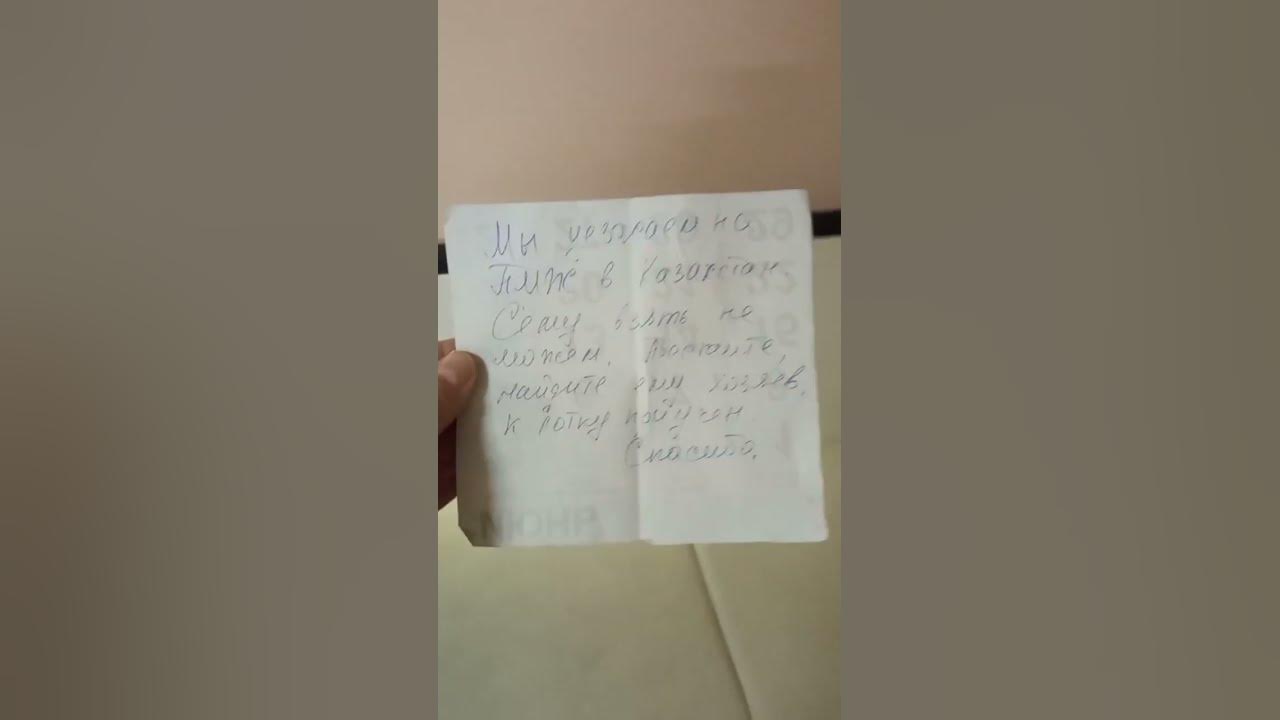 Мы уезжаем на
ПМЖ в Казахстан.
Сёму взять не
можем.
найдите ему хозяев.
К лотку приучен
Спасибо.